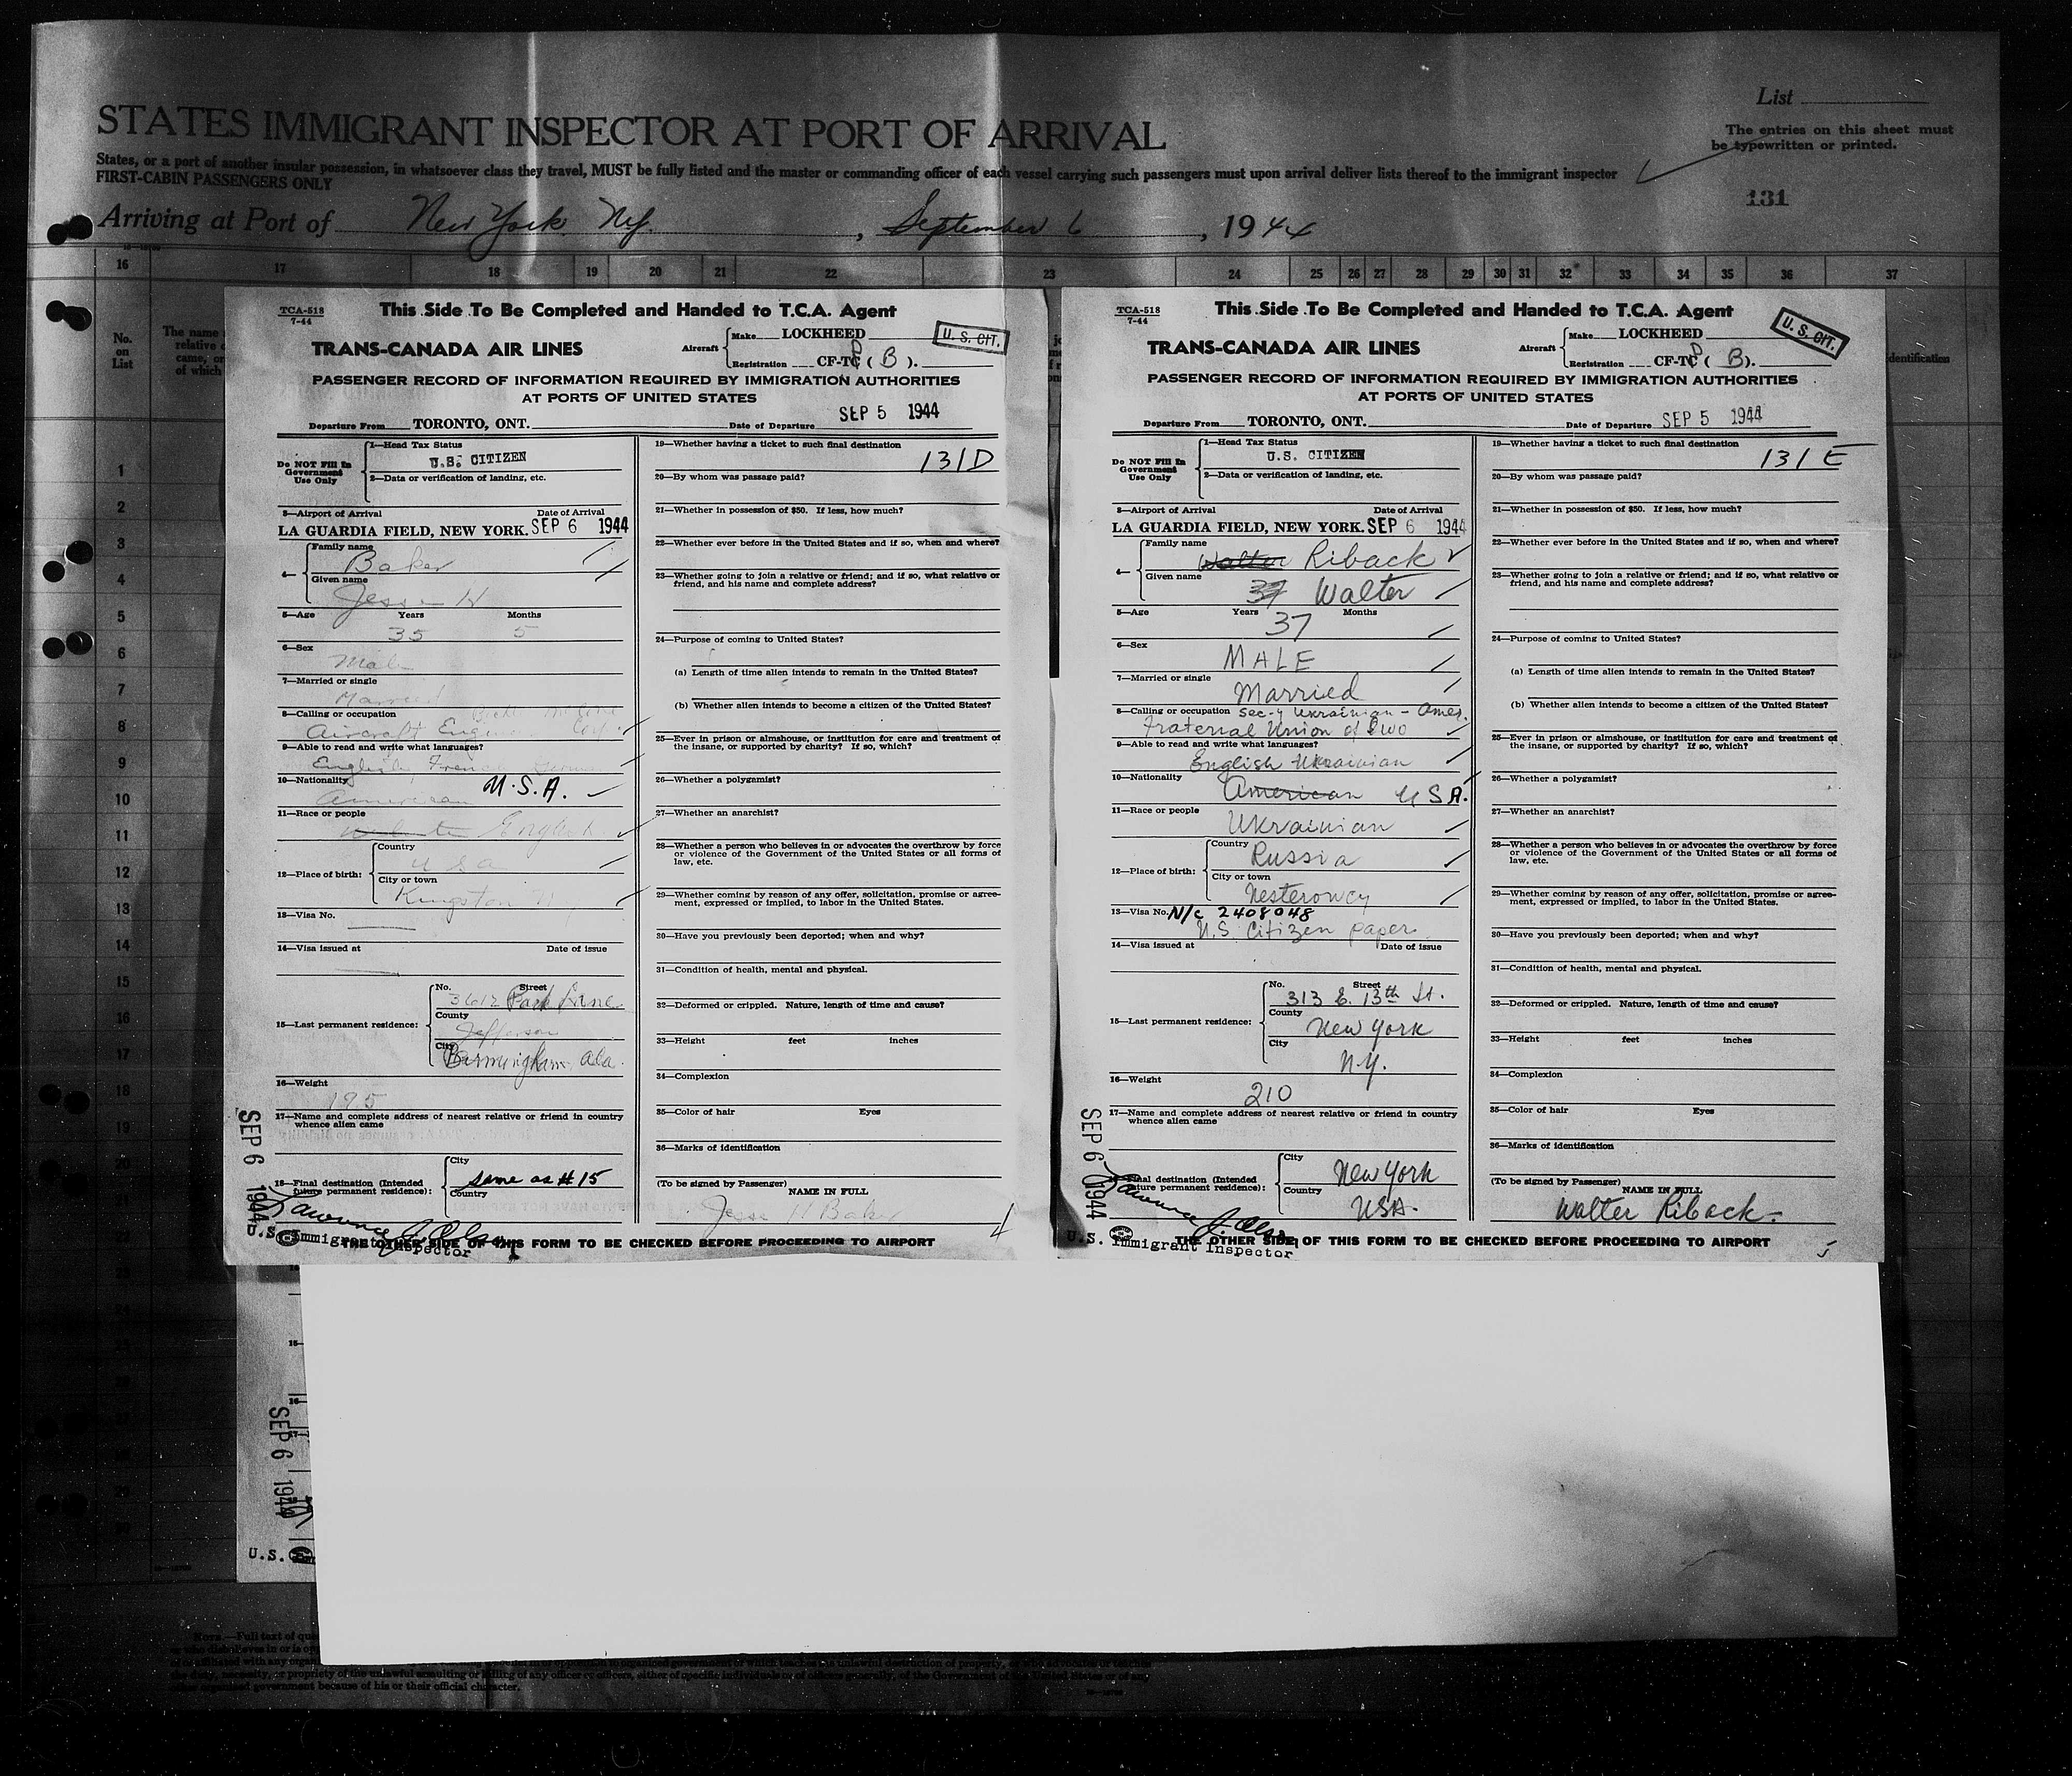 List
STATES IMMIGRANT INSPECTOR AT PORT OF ARRIVAL
The entries on this sheet must
be typewritten or printed.
States, or a port of another insular possession, in whatsoever class they travel, MUST be fully listed and the master or commanding officer of each vessel carrying such passengers must upon arrival deliver lists thereof to the immigrant inspector
FIRST-CABIN PASSENGERS ONLY
131
Arriving at Port of New York N.Y. , September 6 , 1944
16 17 18 19 20 21 22 23 24 25 26 27 28 29 30 31 32 33 34 35 36 37
No.
on
List
The name
relative
came, or
of which
1
2
3
4
5
6
7
8
9
10
11
12
13
14
15
16
17
18
19
20
TCA-518
7-44
This Side To Be Completed and Handed to T.C.A. Agent
U. S. CIT.
TRANS-CANADA AIR LINES
Aircraft
Make LOCKHEED
Registration CF-TC ( B ).
PASSENGER RECORD OF INFORMATION REQUIRED BY IMMIGRATION AUTHORITIES
AT PORTS OF UNITED STATES
Departure From TORONTO, ONT. Date of Departure SEP 5 1944
Do NOT Fill In
Government
Use Only
1—Head Tax Status
U.S. CITIZEN
2—Data or verification of landing, etc.
3—Airport of Arrival Date of Arrival
LA GUARDIA FIELD, NEW YORK. SEP 6 1944
4—
Family name
Baker
Given name
Jesse H
5—Age Years Months
35 5
6—Sex
Male
7—Married or single
Married
8—Calling or occupation
Aircraft
9—Able to read and write what languages?
English, French German
10—Nationality
American U.S.A.
11—Race or people
White English
12—Place of birth:
Country
USA
City or town
Kingston
13—Visa No.
14—Visa issued at Date of issue
15—Last permanent residence:
No. Street
3612 Park Lane
County
Jefferson
City
Birmingham Ala.
16—Weight
195
17—Name and complete address of nearest relative or friend in country
whence alien came
18—Final destination (Intended
future permanent residence):
City
same as # 15
Country
SEP 6 1944
Lawrence J. Olsen
U.S. Immigrant Inspector
19—Whether having a ticket to such final destination
131D
20—By whom was passage paid?
21—Whether in possession of $50. If less, how much?
22—Whether ever before in the United States and if so, when and where?
23—Whether going to join a relative or friend; and if so, what relative or
friend, and his name and complete address?
24—Purpose of coming to United States?
(a) Length of time alien intends to remain in the United States?
(b) Whether alien intends to become a citizen of the United States?
25—Ever in prison or almshouse, or institution for care and treatment of
the insane, or supported by charity? If so, which?
26—Whether a polygamist?
27—Whether an anarchist?
28—Whether a person who believes in or advocates the overthrow by force
or violence of the Government of the United States or all forms of
law, etc.
29—Whether coming by reason of any offer, solicitation, promise or agree-
ment, expressed or implied, to labor in the United States.
30—Have you previously been deported; when and why?
31—Condition of health, mental and physical.
32—Deformed or crippled. Nature, length of time and cause?
33—Height feet inches
34—Complexion
35—Color of hair Eyes
36—Marks of identification
(To be signed by Passenger)
NAME IN FULL
Jesse H Baker
4
THE OTHER SIDE OF THIS FORM TO BE CHECKED BEFORE PROCEEDING TO AIRPORT
TCA-518
7-44
This Side To Be Completed and Handed to T.C.A. Agent
U. S. CIT.
TRANS-CANADA AIR LINES
Aircraft
Make LOCKHEED
Registration CF-TC ( B ).
PASSENGER RECORD OF INFORMATION REQUIRED BY IMMIGRATION AUTHORITIES
AT PORTS OF UNITED STATES
Departure From TORONTO, ONT. Date of Departure SEP 5 1944
Do NOT Fill In
Government
Use Only
1—Head Tax Status
U.S. CITIZEN
2—Data or verification of landing, etc.
3—Airport of Arrival Date of Arrival
LA GUARDIA FIELD, NEW YORK. SEP 6 1944
4—
Family name
Walter Riback
Given name
37 Walter
5—Age Years Months
37
6—Sex
MALE
7—Married or single
Married
8—Calling or occupation Sec-y Ukrainian - Amer.
Fraternal Union of Iwo
9—Able to read and write what languages?
English Ukrainian
10—Nationality
American USA.
11—Race or people
Ukrainian
12—Place of birth:
Country
Russia
City or town
Nesterowcy
13—Visa No. N/c 2408048
U.S Citizen paper.
14—Visa issued at Date of issue
15—Last permanent residence:
No. Street
313 E. 13th St.
County
New York
City
N.Y.
16—Weight
210
17—Name and complete address of nearest relative or friend in country
whence alien came
18—Final destination (Intended
future permanent residence):
City
New York
Country
USA.
SEP 6 1944
Lawrence J. Olsen
U.S. Immigrant Inspector
19—Whether having a ticket to such final destination
131 E
20—By whom was passage paid?
21—Whether in possession of $50. If less, how much?
22—Whether ever before in the United States and if so, when and where?
23—Whether going to join a relative or friend; and if so, what relative or
friend, and his name and complete address?
24—Purpose of coming to United States?
(a) Length of time alien intends to remain in the United States?
(b) Whether alien intends to become a citizen of the United States?
25—Ever in prison or almshouse, or institution for care and treatment of
the insane, or supported by charity? If so, which?
26—Whether a polygamist?
27—Whether an anarchist?
28—Whether a person who believes in or advocates the overthrow by force
or violence of the Government of the United States or all forms of
law, etc.
29—Whether coming by reason of any offer, solicitation, promise or agree-
ment, expressed or implied, to labor in the United States.
30—Have you previously been deported; when and why?
31—Condition of health, mental and physical.
32—Deformed or crippled. Nature, length of time and cause?
33—Height feet inches
34—Complexion
35—Color of hair Eyes
36—Marks of identification
(To be signed by Passenger)
NAME IN FULL
Walter Riback.
5
THE OTHER SIDE OF THIS FORM TO BE CHECKED BEFORE PROCEEDING TO AIRPORT
SEP 6 1944
U.S.
NOTE.—Full text of
the duty, necessity, or propriety of the unlawful assaulting or killing of any officer or officers, either of specific individuals or of officers generally, of the Government of the United States or of any
other organized government because of his or their official character.